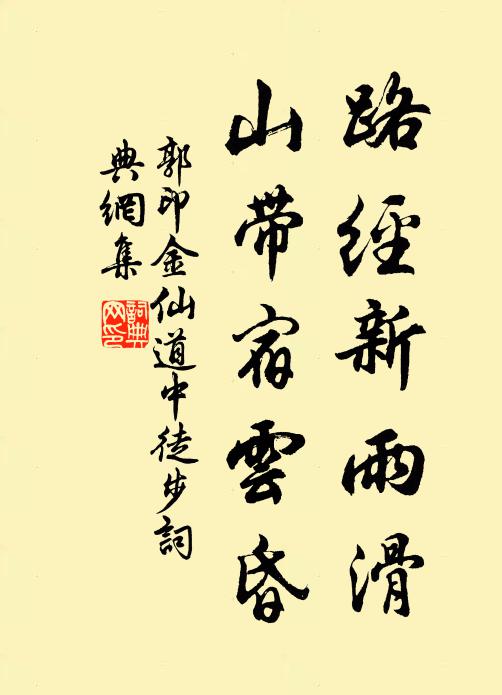 路經新雨滑
山帶宿雲昏
郭印金仙道中徒步詞
典網集
詞典
网印